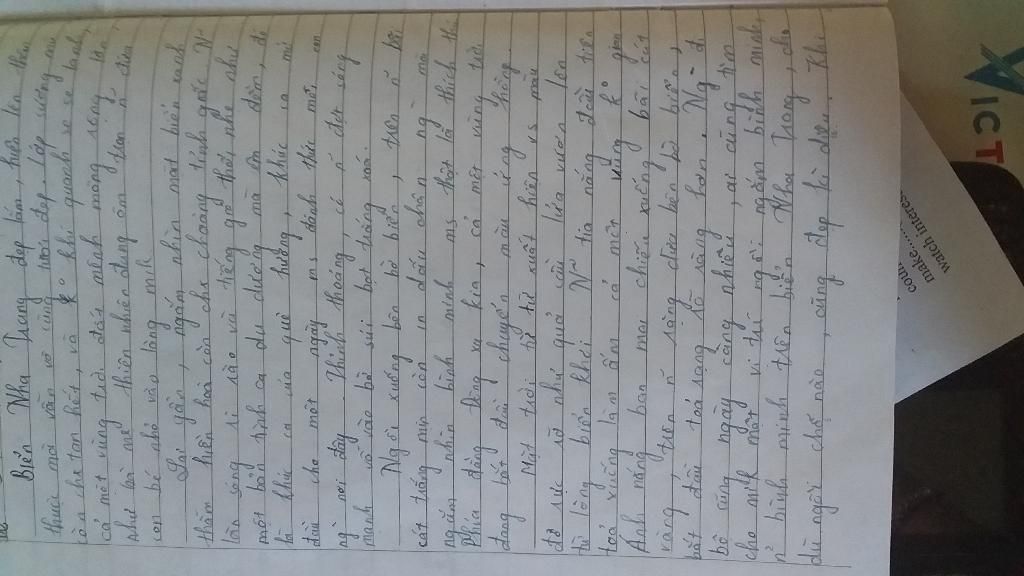 Biển Nha Trang đẹp lắm, hiện lên thân
thuộc mà vẫn vô cùng tươi đẹp. Lớp sương mù
còn chưa tan hết, và ko khí quanh se lạnh,
cả một vùng trời đất mênh mông rộng lớn
như là mẹ thiên nhiên đang ôm trọn ~ đứa
con bé nhỏ vào lòng mik
Lại gần, ngắm nhìn mặt biển xanh
thẳm hiền hoà còn chưa choàng tỉnh giấc. Nx
làn sóng rì rào và tiếng gió thổi nhẹ như
một bản tình ca du dương mà êm đềm, đó
là khúc ca của quê hương, khúc ca mở
đầu cho một ngày ms đánh thức mỗi con
ng nơi đây. Thỉnh thoảng, có ~ đợt sóng
mạnh vỗ vào bờ sủi bọt trắng xoá.
Ngồi xuống bên bờ biển, trên ~ bãi
cát trắng mịn còn in dấu chân ng mà
ngắm nhìn bình minh ms thật là thích thú
Phía đằng Đông xa kia, cả một vùng trời
đang bắt đầu chuyển màu ửng hồng.
Mặt trời từ từ xuất hiện vs màu
đỏ rực rỡ như quả cầu lửa vươn lên
từ lòng biển khơi. Nx tia nắng đầu tiên
toả xuống làm ấm cả một vùng ko gian
Ánh nắng ban mai chiếu xuống bãi cát
vàng, trên ~ rặng dừa bên bờ biển,
bắt đầu toả sạng rõ ràng hơn. Ng đi
bộ cũng ngày càng nhiều, ai cũng tìm
cho mik một vị trí ngồi ngắm bình minh,
~ bình minh trên biển Nha Trang, cho
dù ngồi chỗ nào, cũng đẹp kì diệu. Khi
VICT
make
watch Interes